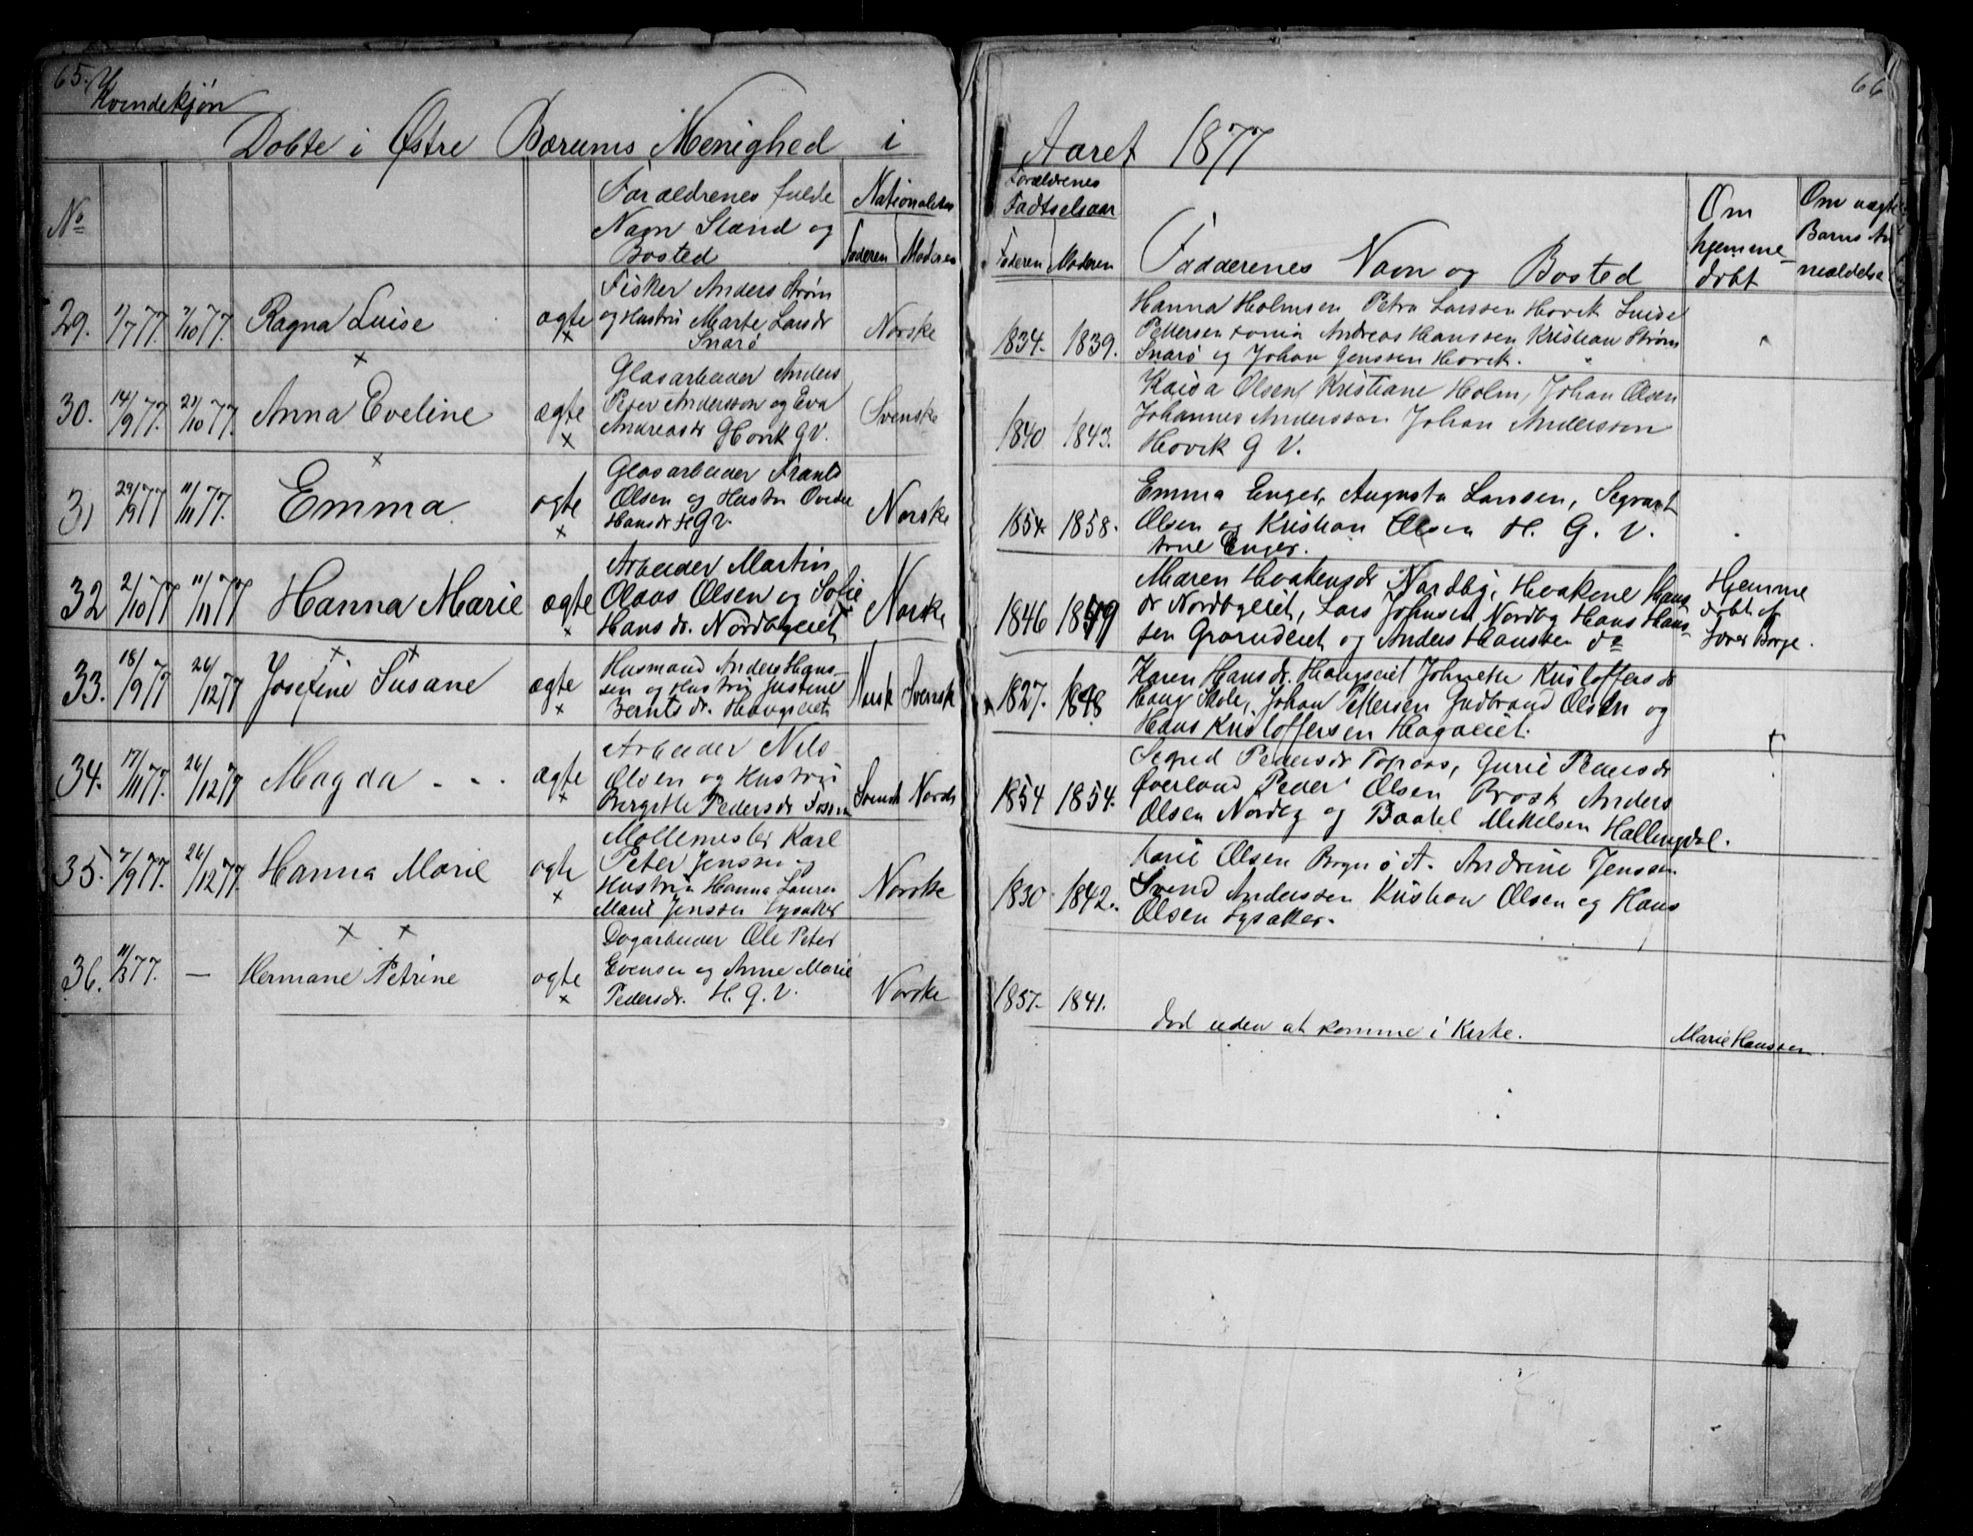 65.
Kvindekjøn
Døbte i Østre Bærums Menighed i
No
Forældrenes fulde
Navn Stand og
Bosted
Nationalitet
Faderen Moderen
29. 7/7 77. 7/10 77. Ragna Luise ægte
Fisker Anders Strøm
og Hustru Marte Larsdr
Snarø
Norske
30. 14/9 77. 21/10 77. Anna Eveline ægte
Glasarbeider Anders
Peter Andersson og Eva
Andreasdr Hövik G V.
Svenske
31 29/9 77 11/11 77. Emma ægte
Glasarbeider Frants
Olsen og Hustru
Hansdr H G V.
Norske
32 2/10 77 11/11 77 Hanna Marie ægte
Arbeider Martin
Olaus Olsen og Sofie
Hansdr. Nordbyeiet
Norske
33. 18/9 77 26/12 77 Josefine Susane ægte
Husmand Anders Hans-
sen og Hustru Justine
Berntsdr. Haugseiet
Norsk Svensk
34. 17/11 77. 26/12 77 Magda - . . ægte
Arbeider Nils
Olsen og Hustru
Birgitte Pedersdr Fossum
Svensk Norsk
35. 7/9 77. 26/12 77. Hanna Marie ægte
Møllemester Karl
Peter Jenssen og
Hustru Hanna Lauren
Marie Jenssen Lysaker
Norske
36. 11/3 77. — Hermane Petrine ægte
Dagarbeider Ole Peter
Evensen og Anne Marie
Pedersdr. H. G. V.
Norske
66
Aaret 1877
Forældrenes
Fødselsaar
Faderen Moderen
Faddernes Navn og Bosted
Om
hjemme-
døbt
Om uægte
Barns An
meldelse
1834. 1839.
Hanna Holmsen Petra Larssen Hovik Luise
Pettersen Andreas Hanssen Kristian Strøm
Snarø og Johan Jenssen Hovik.
1840 1843.
Kaisa Olsen, Kristiane Holm, Johan Olsen
Johannes Andersson Johan Andersson
Hovik G V.
1854. 1858.
Emma Enger, Augusta Larssen, Segvart
Olsen og Kristian Olsen H. G. V.
Enger.
1846 1849
Maren Haakensdr Nordby, Haakene Hans
dr Nordbyeiet, Lars Johnsen Nordby Hans Hans-
sen Grorudeiet og Anders Hanssen do
Hjemme
døbt af
Borge.
1827. 1848
Karen Hansdr. Haugseiet Johnette Kristoffersdr
Haug Skole, Johan Pettersen Gudbrand Olsen og
Hans Kristoffersen Hagaeiet.
1854 1854.
Segred Pedersdr Topaas, Gurie Pedersdr
Øverland Peder Olsen Brask Anders
Olsen Nordby og Baatel Mikkelsen Hallingdal.
1830 1842.
Karie Olsen Bognø A. Andrine Jenssen
Svend Anderssen Kristian Olsen og Hans
Olsen Lysaker.
1857. 1841.
død uden at komme i Kirke.
Marie Hanssen.